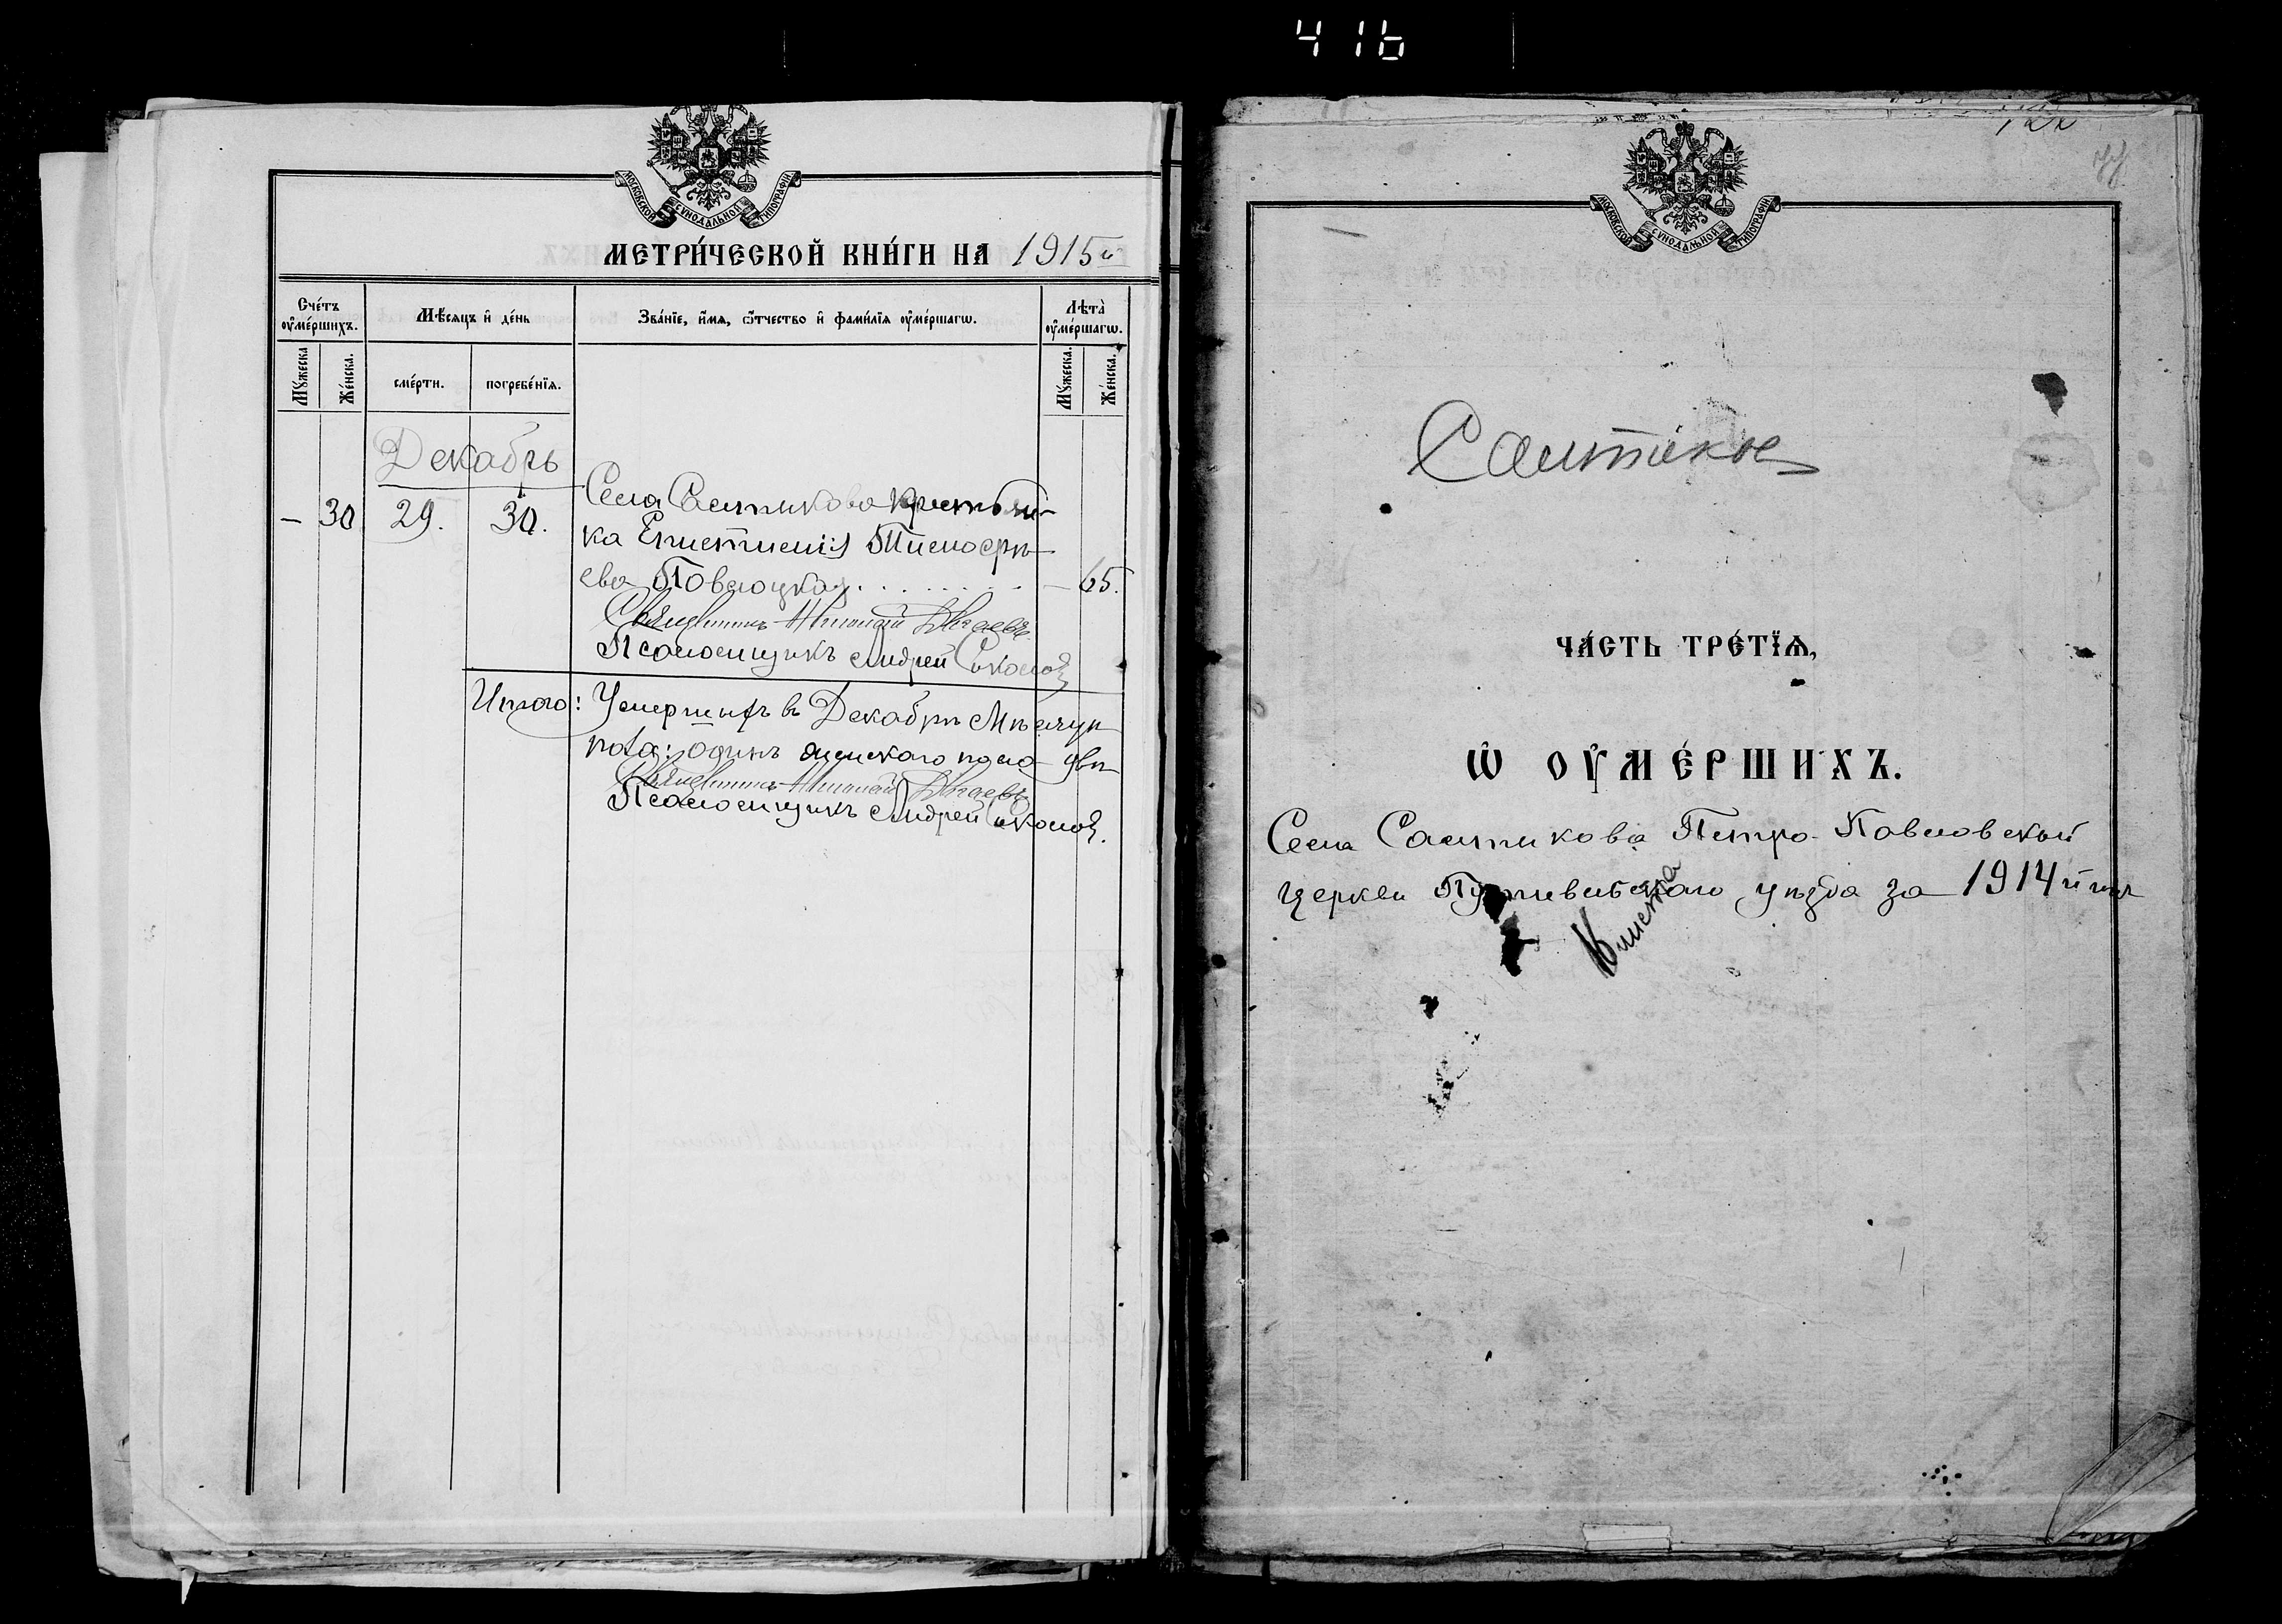 416
МОСКОВСКОЙ СѴНОДАЛЬНОЙ ТИПОГРАФІИ
МЕТРИ́ЧЕСКОЙ КНИ́ГИ НА 1915й
Сче́тъ оу҆ме́ршихъ.
Мѣ́сяцъ и҆ де́нь
Зва́нїе, и҆́мя, ѻ҆́тчество и҆ фами́лїя оу҆ме́ршагѡ.
Лѣта̀ оу҆ме́ршагѡ.
Му́жеска
Же́нска.
сме́рти.
погребе́нїя.
Му́жеска.
Же́нска.
Декабрь
— 30 29. 30. Села Салтыкова крестьян-
ка Епистимія Тимофе-
ева Повлоцкая — 65.
Священникъ Николай
Псаломщикъ Андрей Соколов
Итого: Умершихъ въ Декабрѣ Мѣсяцѣ
пола: одинъ женскаго пола двѣ
Священникъ Николай
Псаломщикъ Андрей Соколов.
МОСКОВСКОЙ СѴНОДАЛЬНОЙ ТИПОГРАФІИ
Салтыков
ЧА́СТЬ ТРЕ́ТЇѦ,
Ѡ҆ ОУ҆МЕ́РШИХЪ.
Села Салтыкова Петро-Павловской
церкви Путивльскаго уѣзда за 1914й